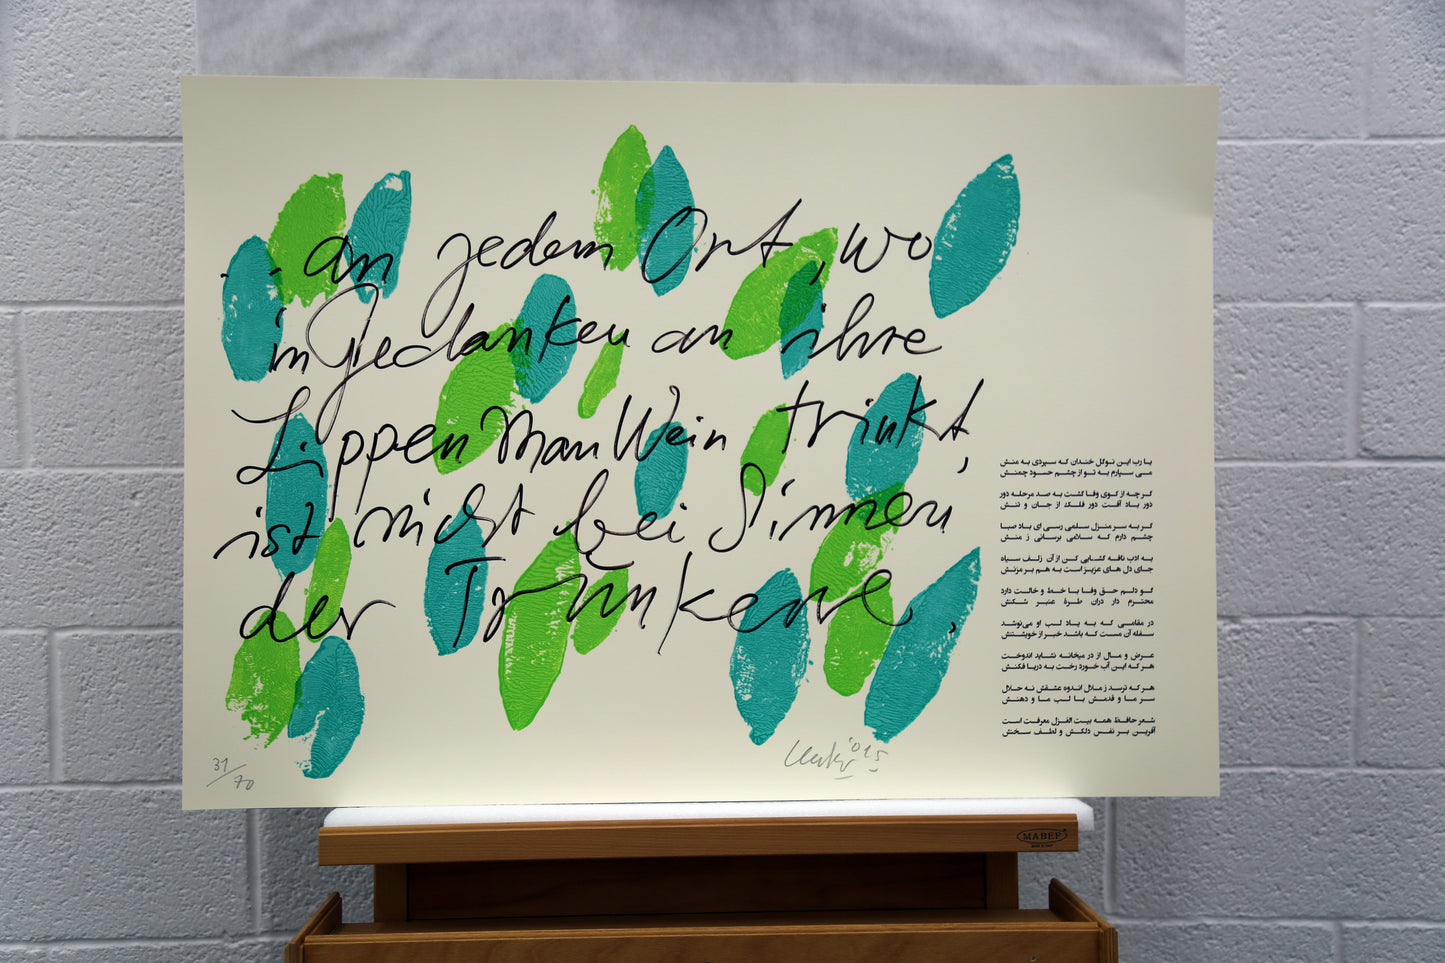 . . an jedem Ort, wo
in Gedanken an ihre
Lippen man Wein trinkt,
ist nicht bei Sinnen
der Trunkene.
یا رب این نوگل خندان که سپردی به منش
می سپارم به تو از چشم حسود چمنش
گرچه از کوی وفا گشت به صد مرحله دور
دور باد آفت دور فلک از جان و تنش
گر به سرمنزل سلمی رسی ای باد صبا
چشم دارم که سلامی برسانی ز منش
به ادب نافه گشایی کن از آن زلف سیاه
جای دل های عزیز است به هم بر مزنش
گو دلم حق وفا با خط و خالت دارد
محترم دار در‌ان طرهٔ عنبر شکنش
در مقامی که به یاد لب او می‌نوشند
سفله آن مست که باشد خبر از خویشتنش
عرض و مال از در میخانه نشاید اندوخت
هر که این آب خورد رخت به دریا فکنش
هر که ترسد ز ملال اندوه عشقش نه حلال
سر ما و قدمش یا لب ما و دهنش
شعر حافظ همه بیت الغزل معرفت است
آفرین بر نفس دلکش و لطف سخنش
31/70
'015
MABEF